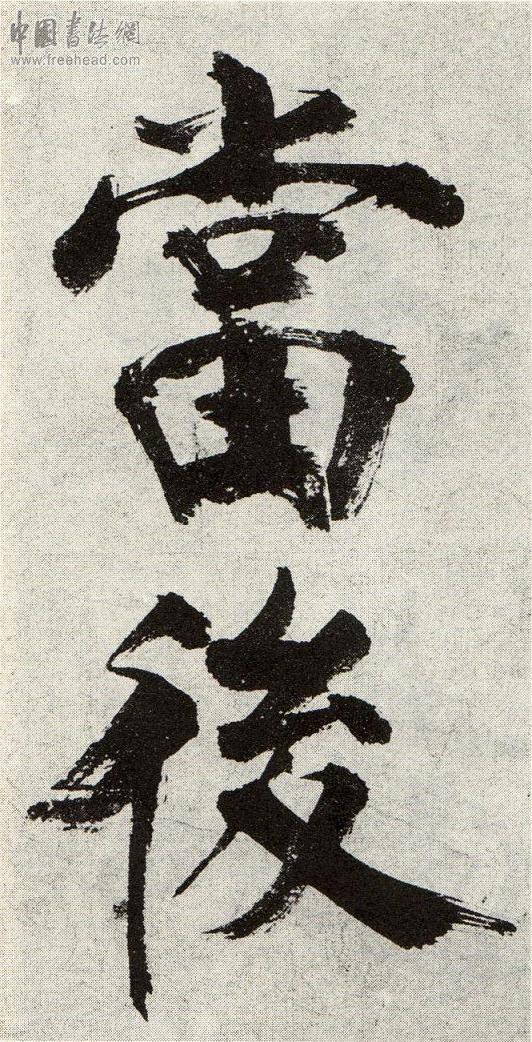 中国书法網
www.freehead.com
當
後